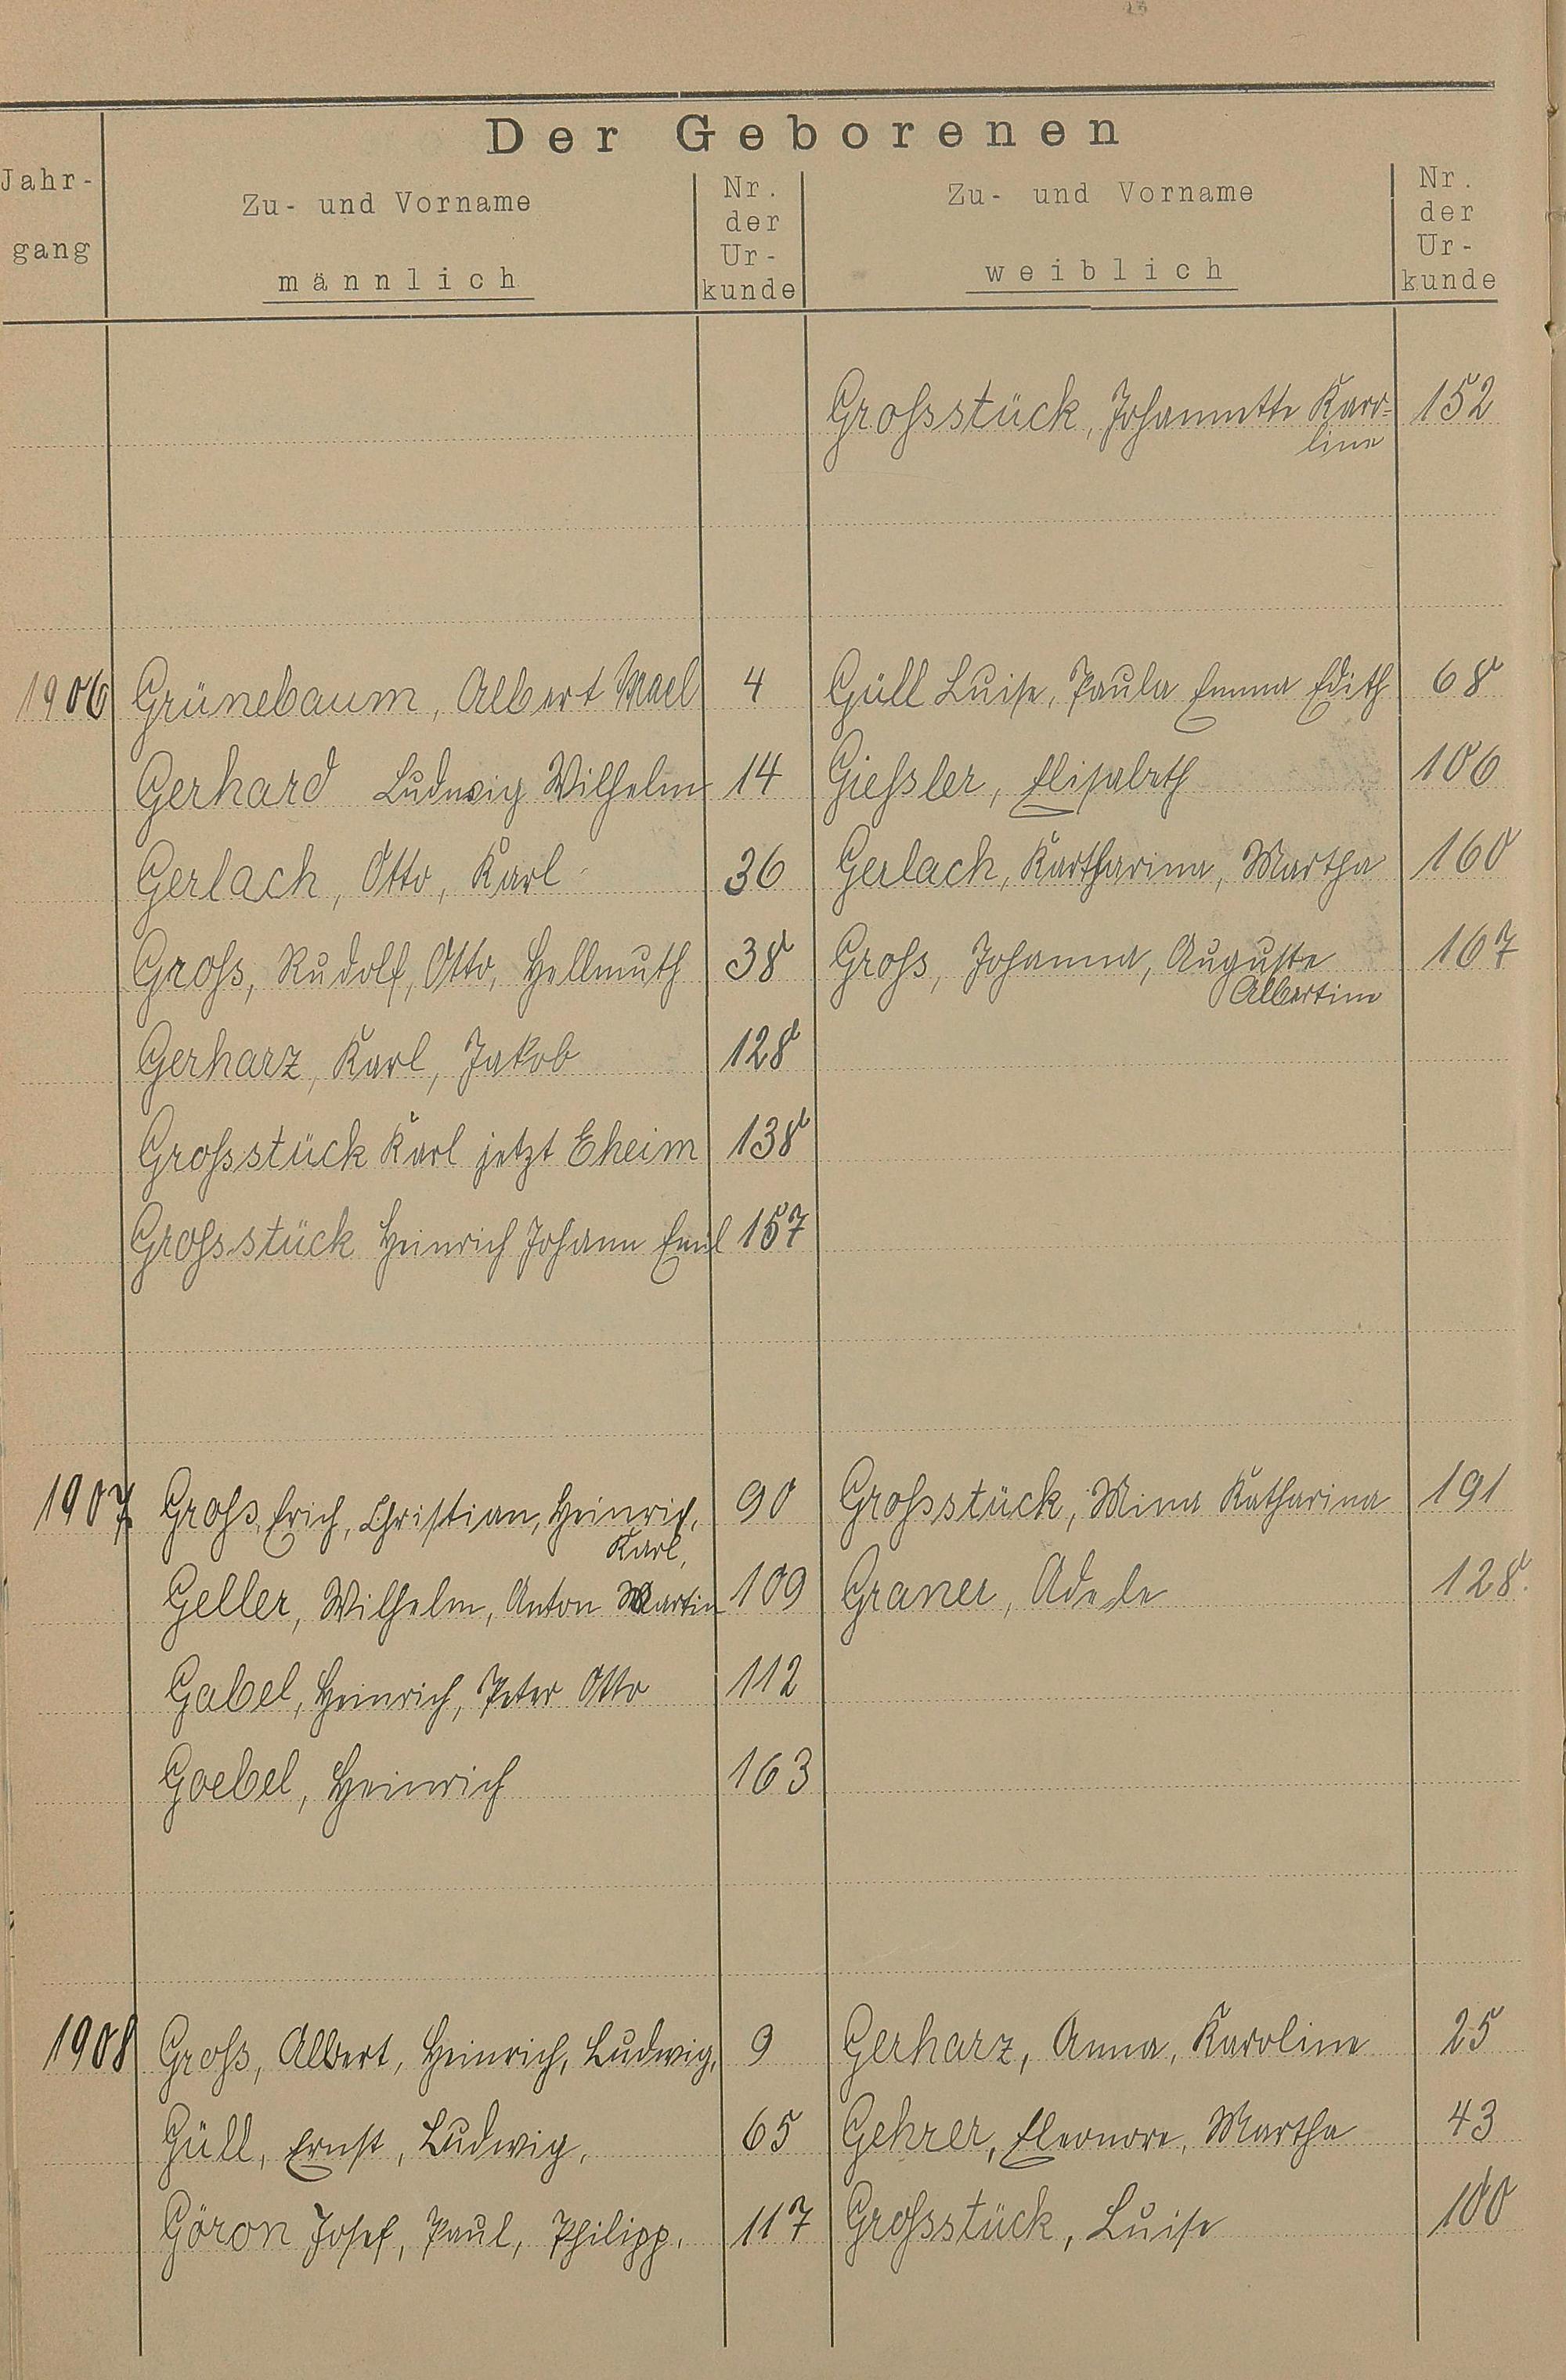 Der Geborenen
Jahr-
gang
Zu- und Vorname
männlich
Nr.
der
Ur-
kunde
Zu- und Vorname
weiblich
Nr.
der
Ur-
kunde
Großstück, Johannette Karo- 152
line
1906 Grünebaum, Albert Mael 4 Güll Luise, Paula Emma Edith 68
Gerhard Ludwig Wilhelm 14 Gießler, Elisabeth 106
Gerlach, Otto, Karl 36 Gerlach, Kartharina, Martha 160
Groß, Rudolf, Otto, Hellmuth 38 Groß, Johanna, Auguste 167
Albertine
Gerharz, Karl, Jakob 128
Großstück Karl jetzt Eheim 138
Großstück Heinrich Johann Emil 157
1907 Groß, Erich, Christian, Heinrich, 90 Großstück, Mina Katharina 191
Karl,
Geller, Wilhelm, Anton Martin 109 Graner, Adele 128.
Gabel, Heinrich, Peter Otto 112
Goebel, Heinrich 163
1908 Groß, Albert, Heinrich, Ludwig, 9 Gerharz, Anna, Karoline 25
Güll, Ernst, Ludwig, 65 Gehrer, Eleonore, Martha 43
Göron Josef, Paul, Philipp. 117 Großstück, Luise 100